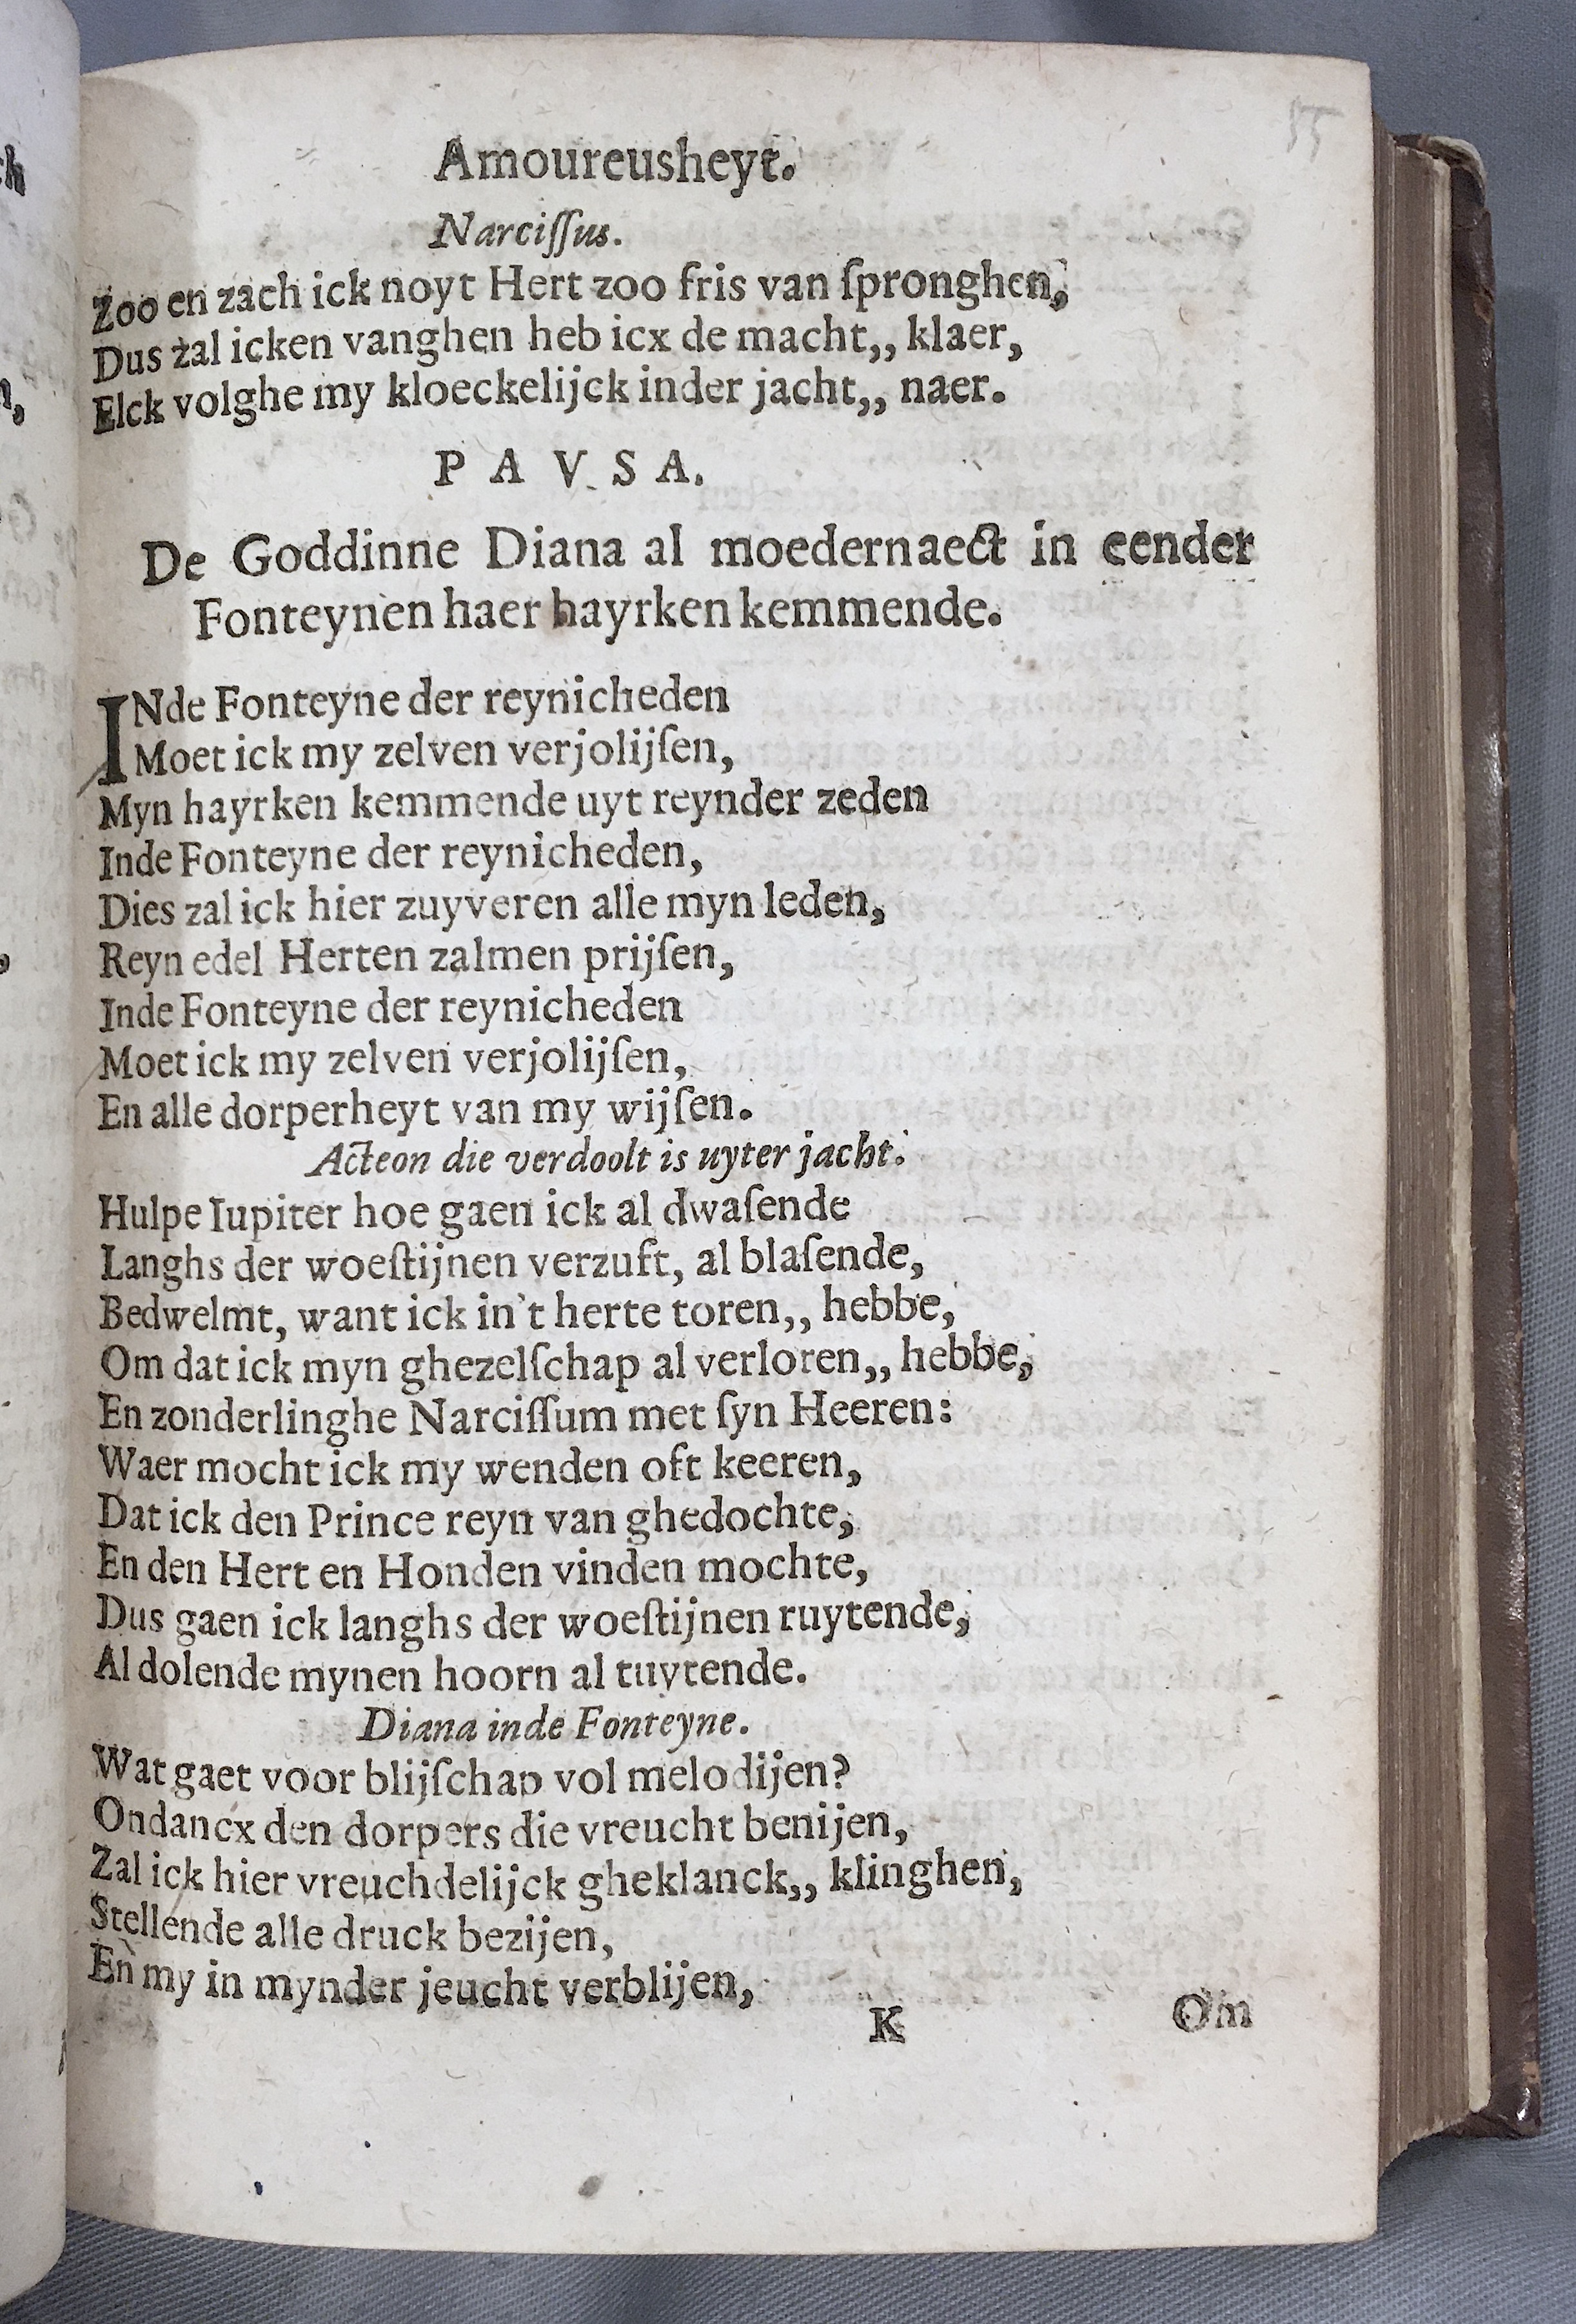 15
Amoureusheyt.
Narciſſus.
Zoo en zach ick noyt Hert zoo fris van ſpronghen,
Dus zal icken vanghen heb icx de macht,, klaer,
Elck volghe my kloeckelijck inder jacht,, naer.
P A V S A.
De Goddinne Diana al moedernaect in eender
Fonteynen haer hayrken kemmende.
INde Fonteyne der reynicheden
Moet ick my zelven verjolijſen,
Myn hayrken kemmende uyt reynder zeden
Inde Fonteyne der reynicheden,
Dies zal ick hier zuyveren alle myn leden,
Reyn edel Herten zalmen prijſen,
Inde Fonteyne der reynicheden
Moet ick my zelven verjolijſen,
En alle dorperheyt van my wijſen.
Acteon die verdoolt is uyter jacht.
Hulpe Iupiter hoe gaen ick al dwaſende
Langhs der woeſtijnen verzuft, al blaſende,
Bedwelmt, want ick in't herte toren,, hebbe,
Om dat ick myn ghezelſchap al verloren,, hebbe,
En zonderlinghe Narciſſum met ſyn Heeren:
Waer mocht ick my wenden oft keeren,
Dat ick den Prince reyn van ghedochte,
En den Hert en Honden vinden mochte,
Dus gaen ick langhs der woeſtijnen ruytende,
Al dolende mynen hoorn al tuytende.
Diana inde Fonteyne.
Wat gaet voor blijſchap vol melodijen?
Ondancx den dorpers die vreucht benijen,
Zal ick hier vreuchdelijck gheklanck,, klinghen,
Stellende alle druck bezijen,
En my in mynder jeucht verblijen,
K
Om